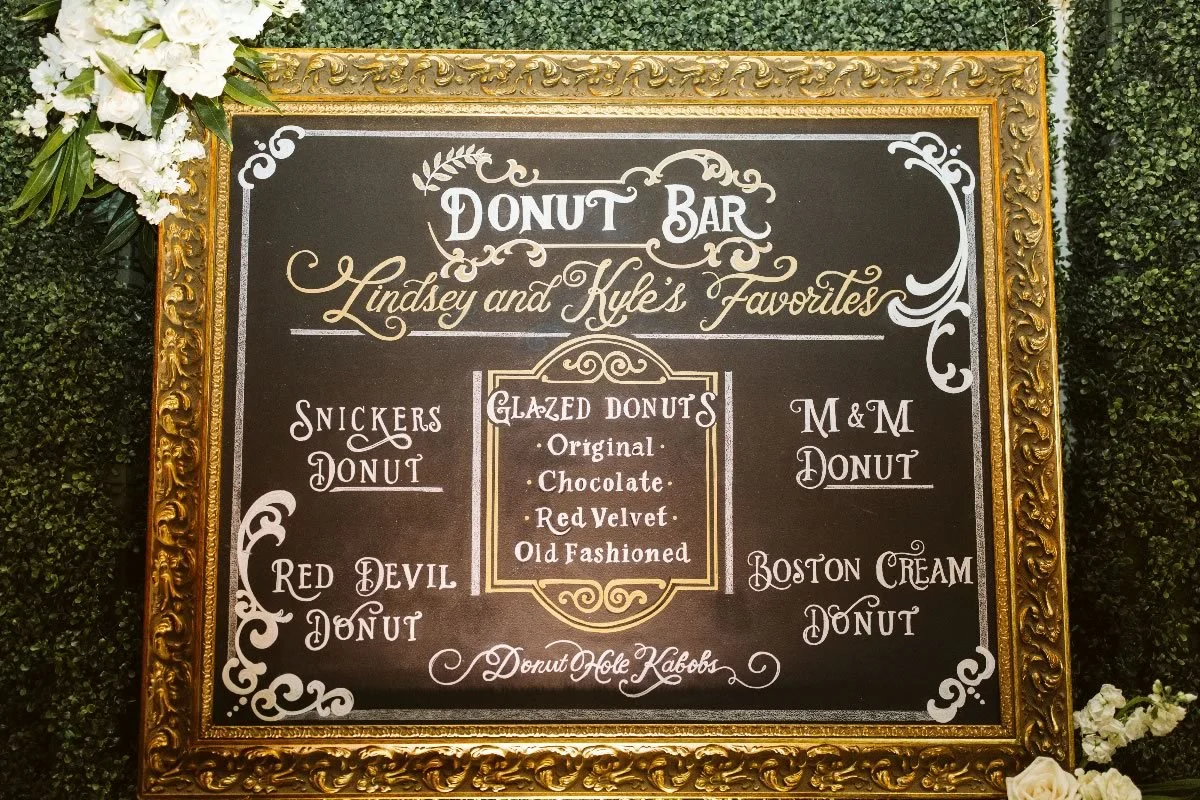 DONUT BAR
Lindsey and Kyle's Favorites
SNICKERS
DONUT
RED DEVIL
DONUT
GLAZED DONUTS
· Original ·
· Chocolate ·
· Red Velvet ·
Old Fashioned
M & M
DONUT
BOSTON CREAM
DONUT
Donut Hole Kabobs